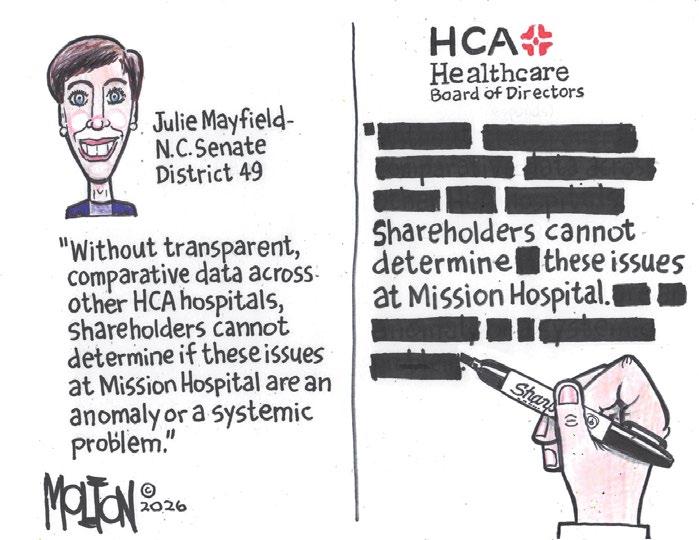 Julie Mayfield-
N.C. Senate
District 49
"Without transparent,
comparative data across
other HCA hospitals,
shareholders cannot
determine if these issues
at Mission Hospital are an
anomaly or a systemic
problem."
MOLTON
© 2026
HCA
Healthcare
Board of Directors
Shareholders cannot
determine these issues
at Mission Hospital.
Sharp